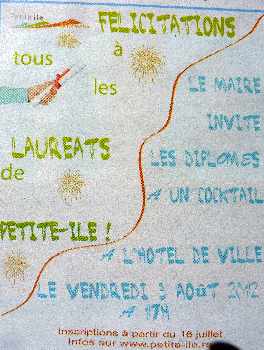 FELICITATIONS
à
tous
les
LAUREATS
de
PETITE-ILE !
LE MAIRE
INVITE
LES DIPLOMES
A UN COCKTAIL
A L'HOTEL DE VILLE
LE VENDREDI 3 AOÛT 2012
A 17H
Inscriptions à partir du 16 juillet
Infos sur www.petite-ile.re